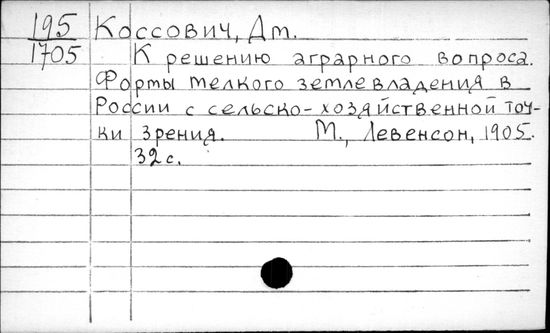 195 Коссович, Дм.
1705 К решению аграрного вопроса.
Формы мелкого землевладения в
России с сельско-хозяйственной точ-
ки зрения. М., Левенсон, 1905.
32 с.